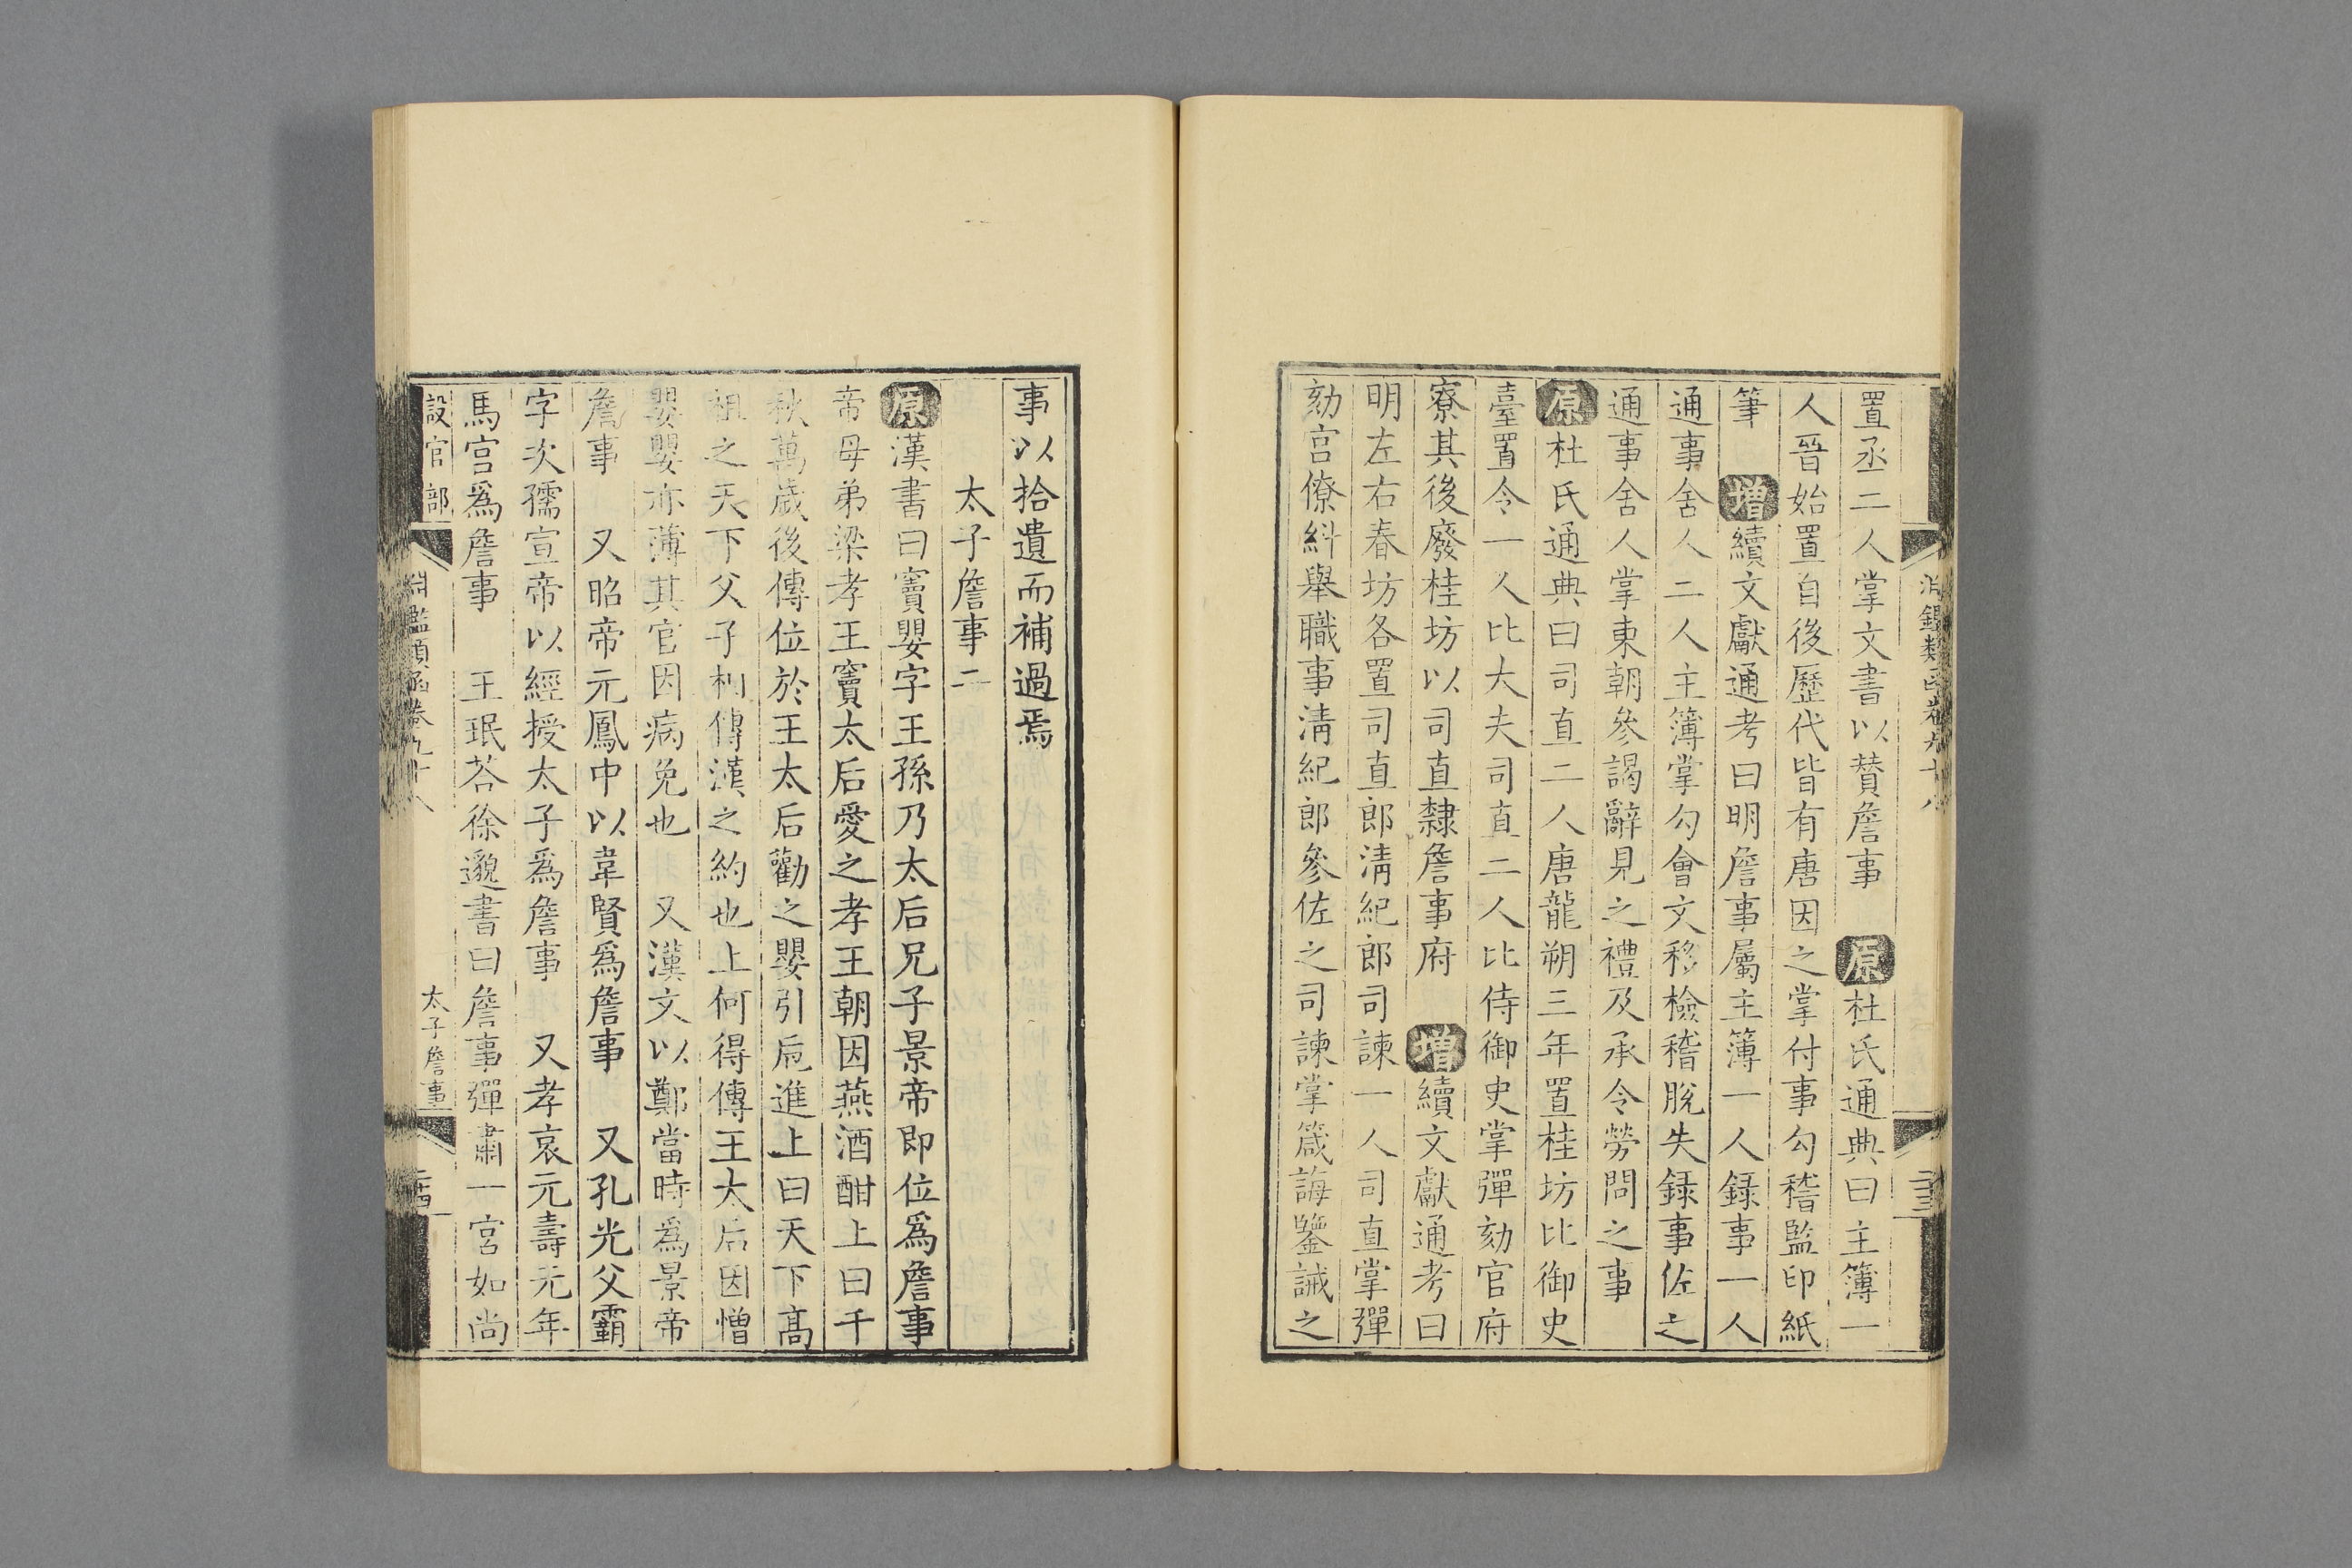 置丞二人掌文書以賛詹事　原杜氏通典曰主簿一
人晉始置自後歷代皆有唐因之掌付事勾稽監印紙
筆　增續文獻通考曰明詹事屬主簿一人録事一人
通事舍人二人主簿掌勾會文移檢稽脫失録事佐之
通事舍人掌東朝參謁辭見之禮及承令勞問之事
原杜氏通典曰司直二人唐龍朔三年置桂坊比御史
臺置令一人比大夫司直二人比侍御史掌彈劾官府
寮其後廢桂坊以司直隸詹事府　增續文獻通考曰
明左右春坊各置司直郎清紀郎司諫一人司直掌彈
劾宮僚糾舉職事清紀郎參佐之司諫掌箴誨鑒誡之
事以拾遺而補過焉
太子詹事二
原漢書曰竇嬰字王孫乃太后兄子景帝即位爲詹事
帝母弟梁孝王竇太后愛之孝王朝因燕酒酣上曰千
秋萬歲後傳位於王太后勸之嬰引巵進上曰天下髙
祖之天下父子相傳漢之約也上何得傳王太后因憎
嬰嬰亦薄其官因病免也　又漢文以鄭當時爲景帝
詹事　又昭帝元鳳中以韋賢爲詹事　又孔光父霸
字次孺宣帝以經授太子爲詹事　又孝哀元壽元年
馬宮爲詹事　王珉荅徐邈書曰詹事彈肅一宮如尚
設官部
淵鑑類函卷九十八
太子詹事
二十四